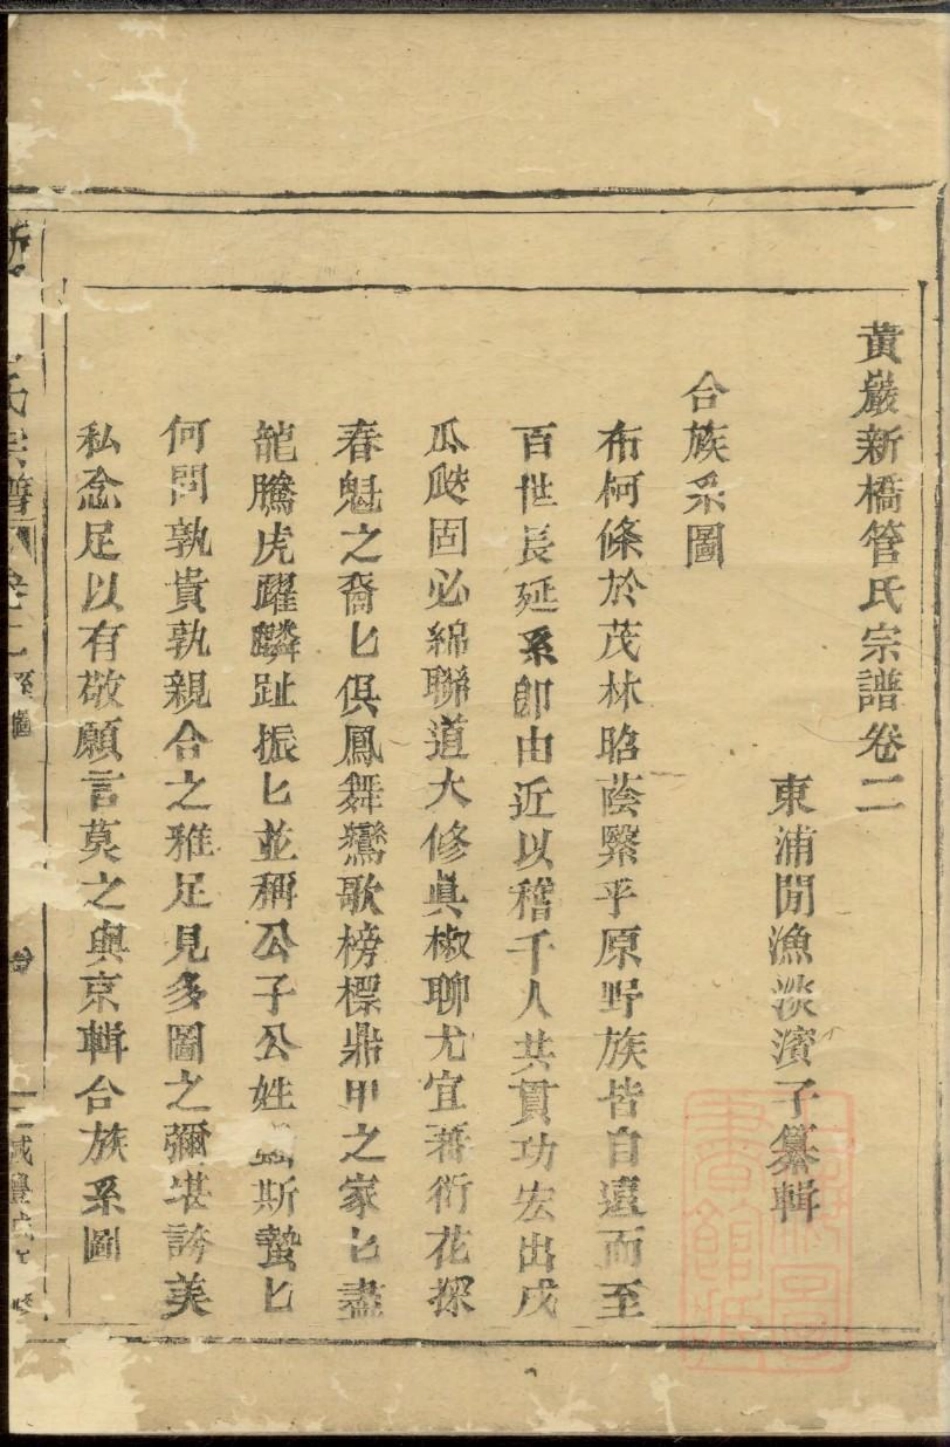 黃巖新橋管氏宗譜卷二
東浦閒漁淡濱子纂輯
合族系圖
布柯條於茂林晗蔭繄乎原野族皆自遠而至
百世長延系卽由近以稽千人共貫功宏出戍
瓜瓞固必綿聯道大修眞椒聊尤宜蕃衍花探
春魁之裔匕俱鳳舞鸞歌榜標鼎甲之家匕盡
龍騰虎躍麟趾振匕並稱公子公姓螽斯蟄匕
何問孰貴孰親合之雅足見多圖之彌堪誇美
私念足以有敬願言莫之與京輯合族系圖
氏宗譜 卷二 系圖